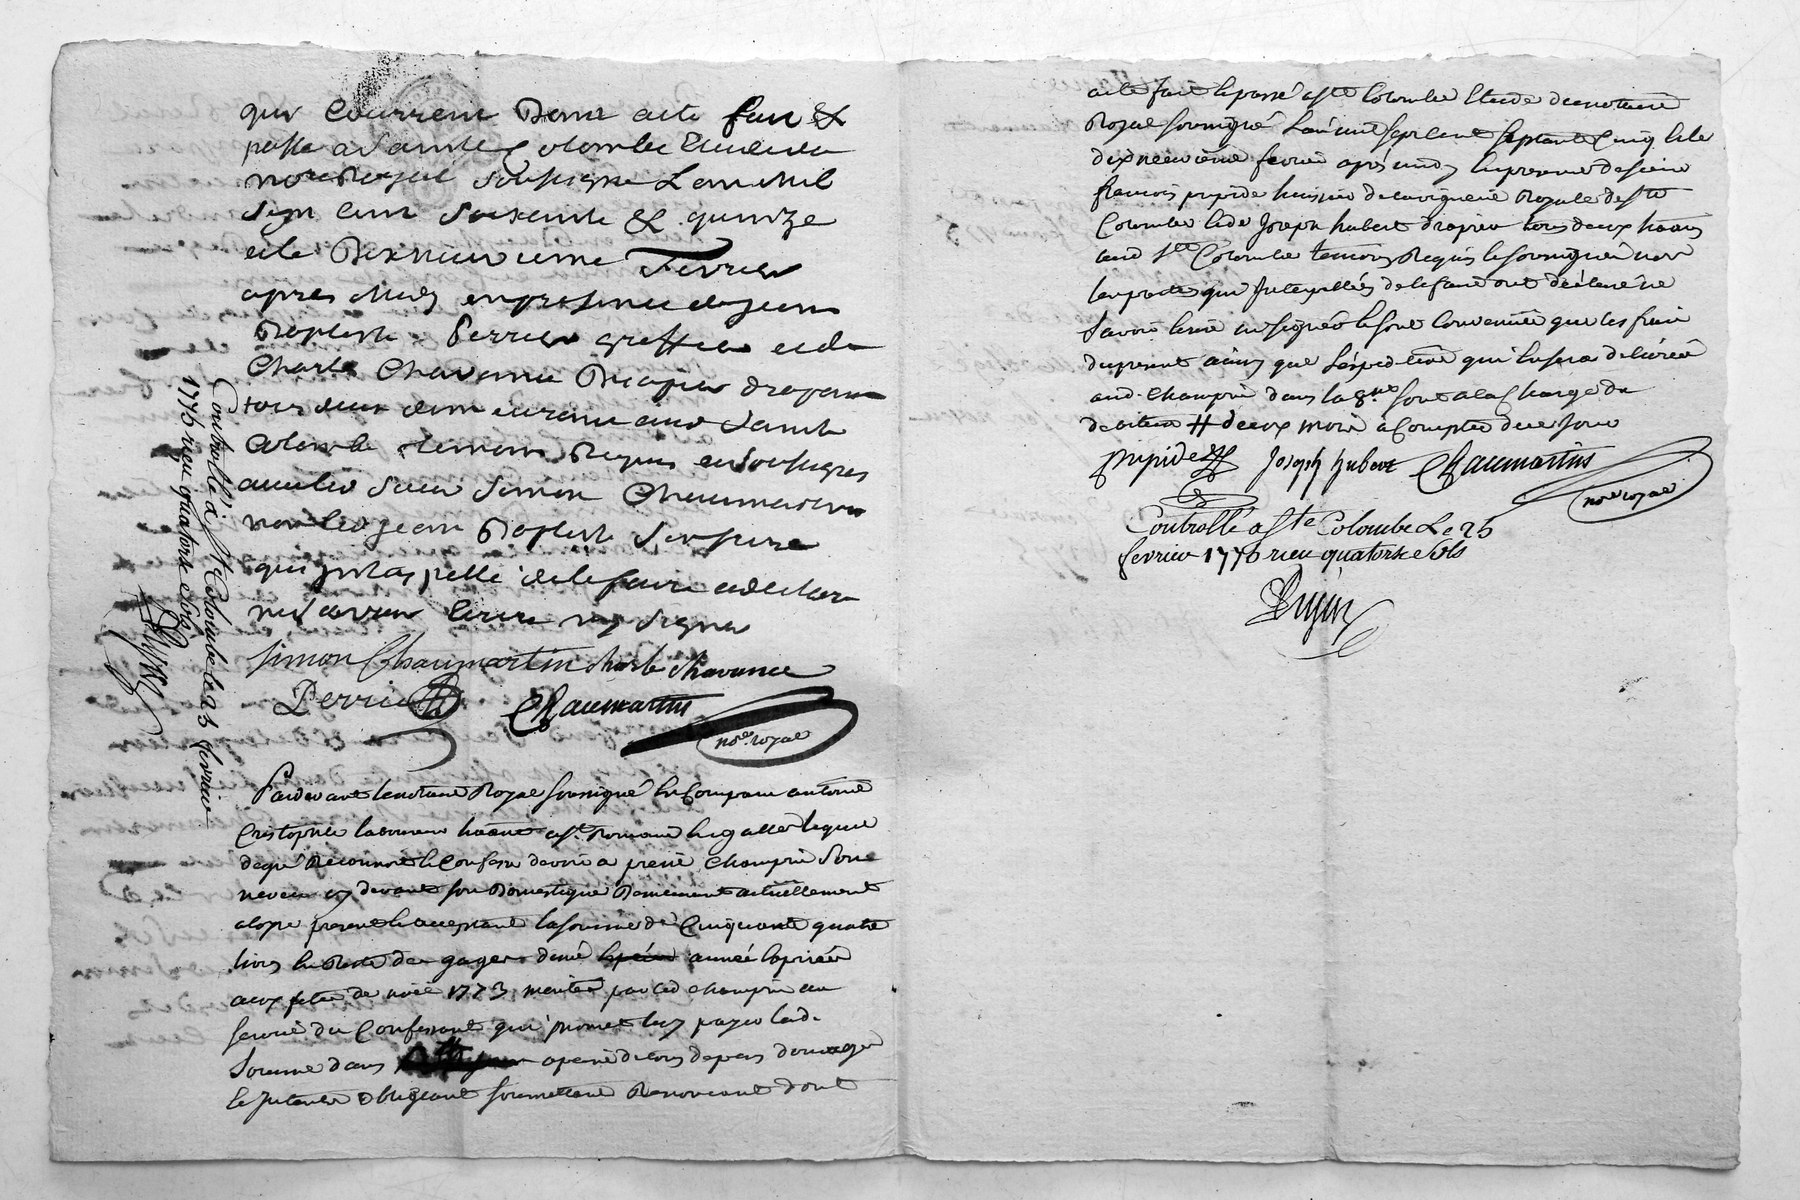 qui Courrent Dont acte fait &
passé a Sainte Colombe Etude du
notre Royal soussigné Lan mil
Sept cent Soixante & quinze
et le Dixneuvieme Fevrier
apres midy en presence de jean
Baptiste Perrier greffier et de
Charle Chavance Drapier drapant
tous deux demeurant aud Sainte
Colombe temoins Requis et soussignes
avec led sieur Simon Chaumartin
non led jean Baptiste
qui jntaspellé de le faire a declaré
ne scavoir écrire ny signer
Simon Chaumartin charle chavance
Perrier Chaumartin
not.re royal
Pardevant le notaire Royal soussigné est Comparu antoine
Cristophle laboureur a St. Romain lequel
de gré Reconnoit & Confesse devoir a pierre Champin Son
neveu cy devant son Domestique Demeurant actuellement
present & acceptant la somme de Cinquante quatre
livres de Reste de gages d'une année expirée
aux fetes de noel 1773 merités par led champin au
service du Confessant qui promet luy payer lad.
Somme dans a peine de tous depens domages
& jnterets obligeant soumettant Renonceant dont
Controllé à Ste Colombe le 25 fevrier
1775 reçu quatorse sols
acte fait & passé a Ste Colombe Etude du notaire
Royal soussigné L'an mil sept cent septante Cinq & le
dixneuvieme fevrier après midy En presence de sieur
francois pipide huissier de la viguerie Royale de Ste
Colombe & de Joseph hubert drapier tous deux
aud Ste Colombe temoins Requis & soussignés non
les parties qui Interpellées de le faire ont declaré ne
Savoir ecrire ni signer & sont Convenues que les frais
du present ainsy que l'expedition qui en sera delivrée
aud. Champin dans la 8.ne sont a la Charge du
debiteur # deux mois a Compter de ce jour
pipide Joseph hubert Chaumartin
not.re royal
Controllé a Ste Colombe Le 25
fevrier 1775 reçu quatorse sols